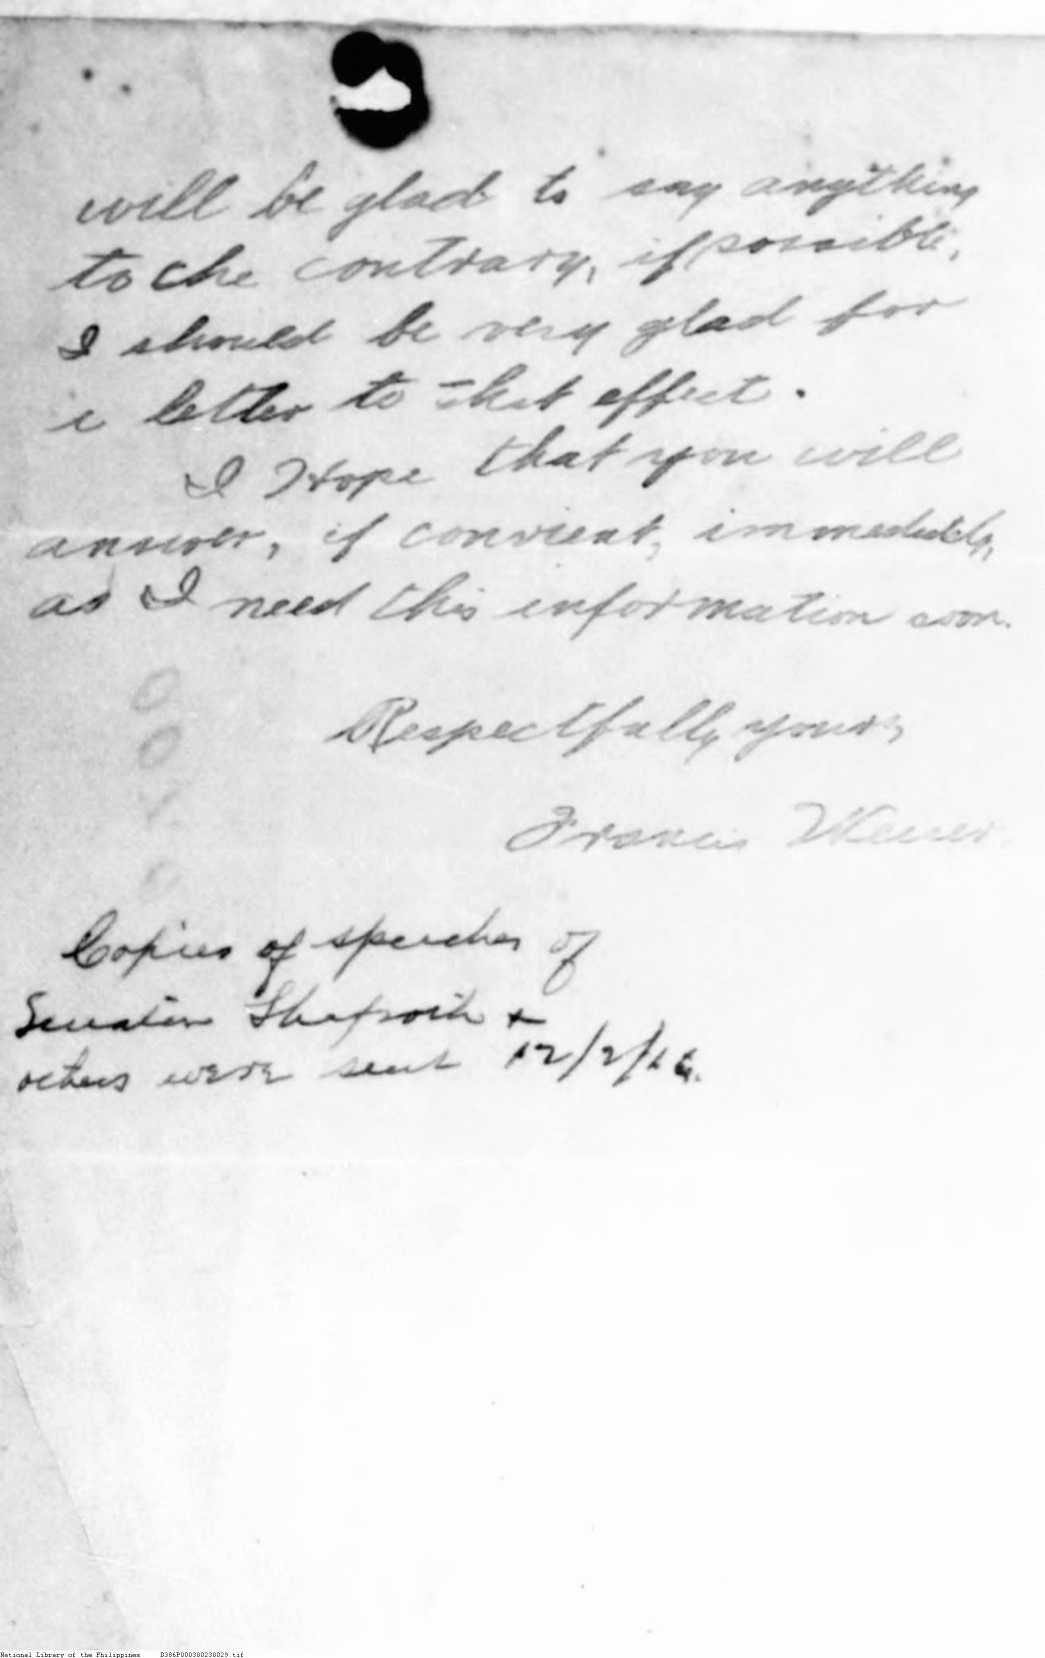 will be glad to say anything
to the contrary, if possible,
I should be very glad for
a letter to that effect.
I Hope that you will
answer, if convient, immediately,
as I need this information soon.
Respectfully yours,
Francis
Copies of speeches of
Senator Shafroth +
others were sent 12/2/16.
National Library of the Philippines D386P000300230029.tif